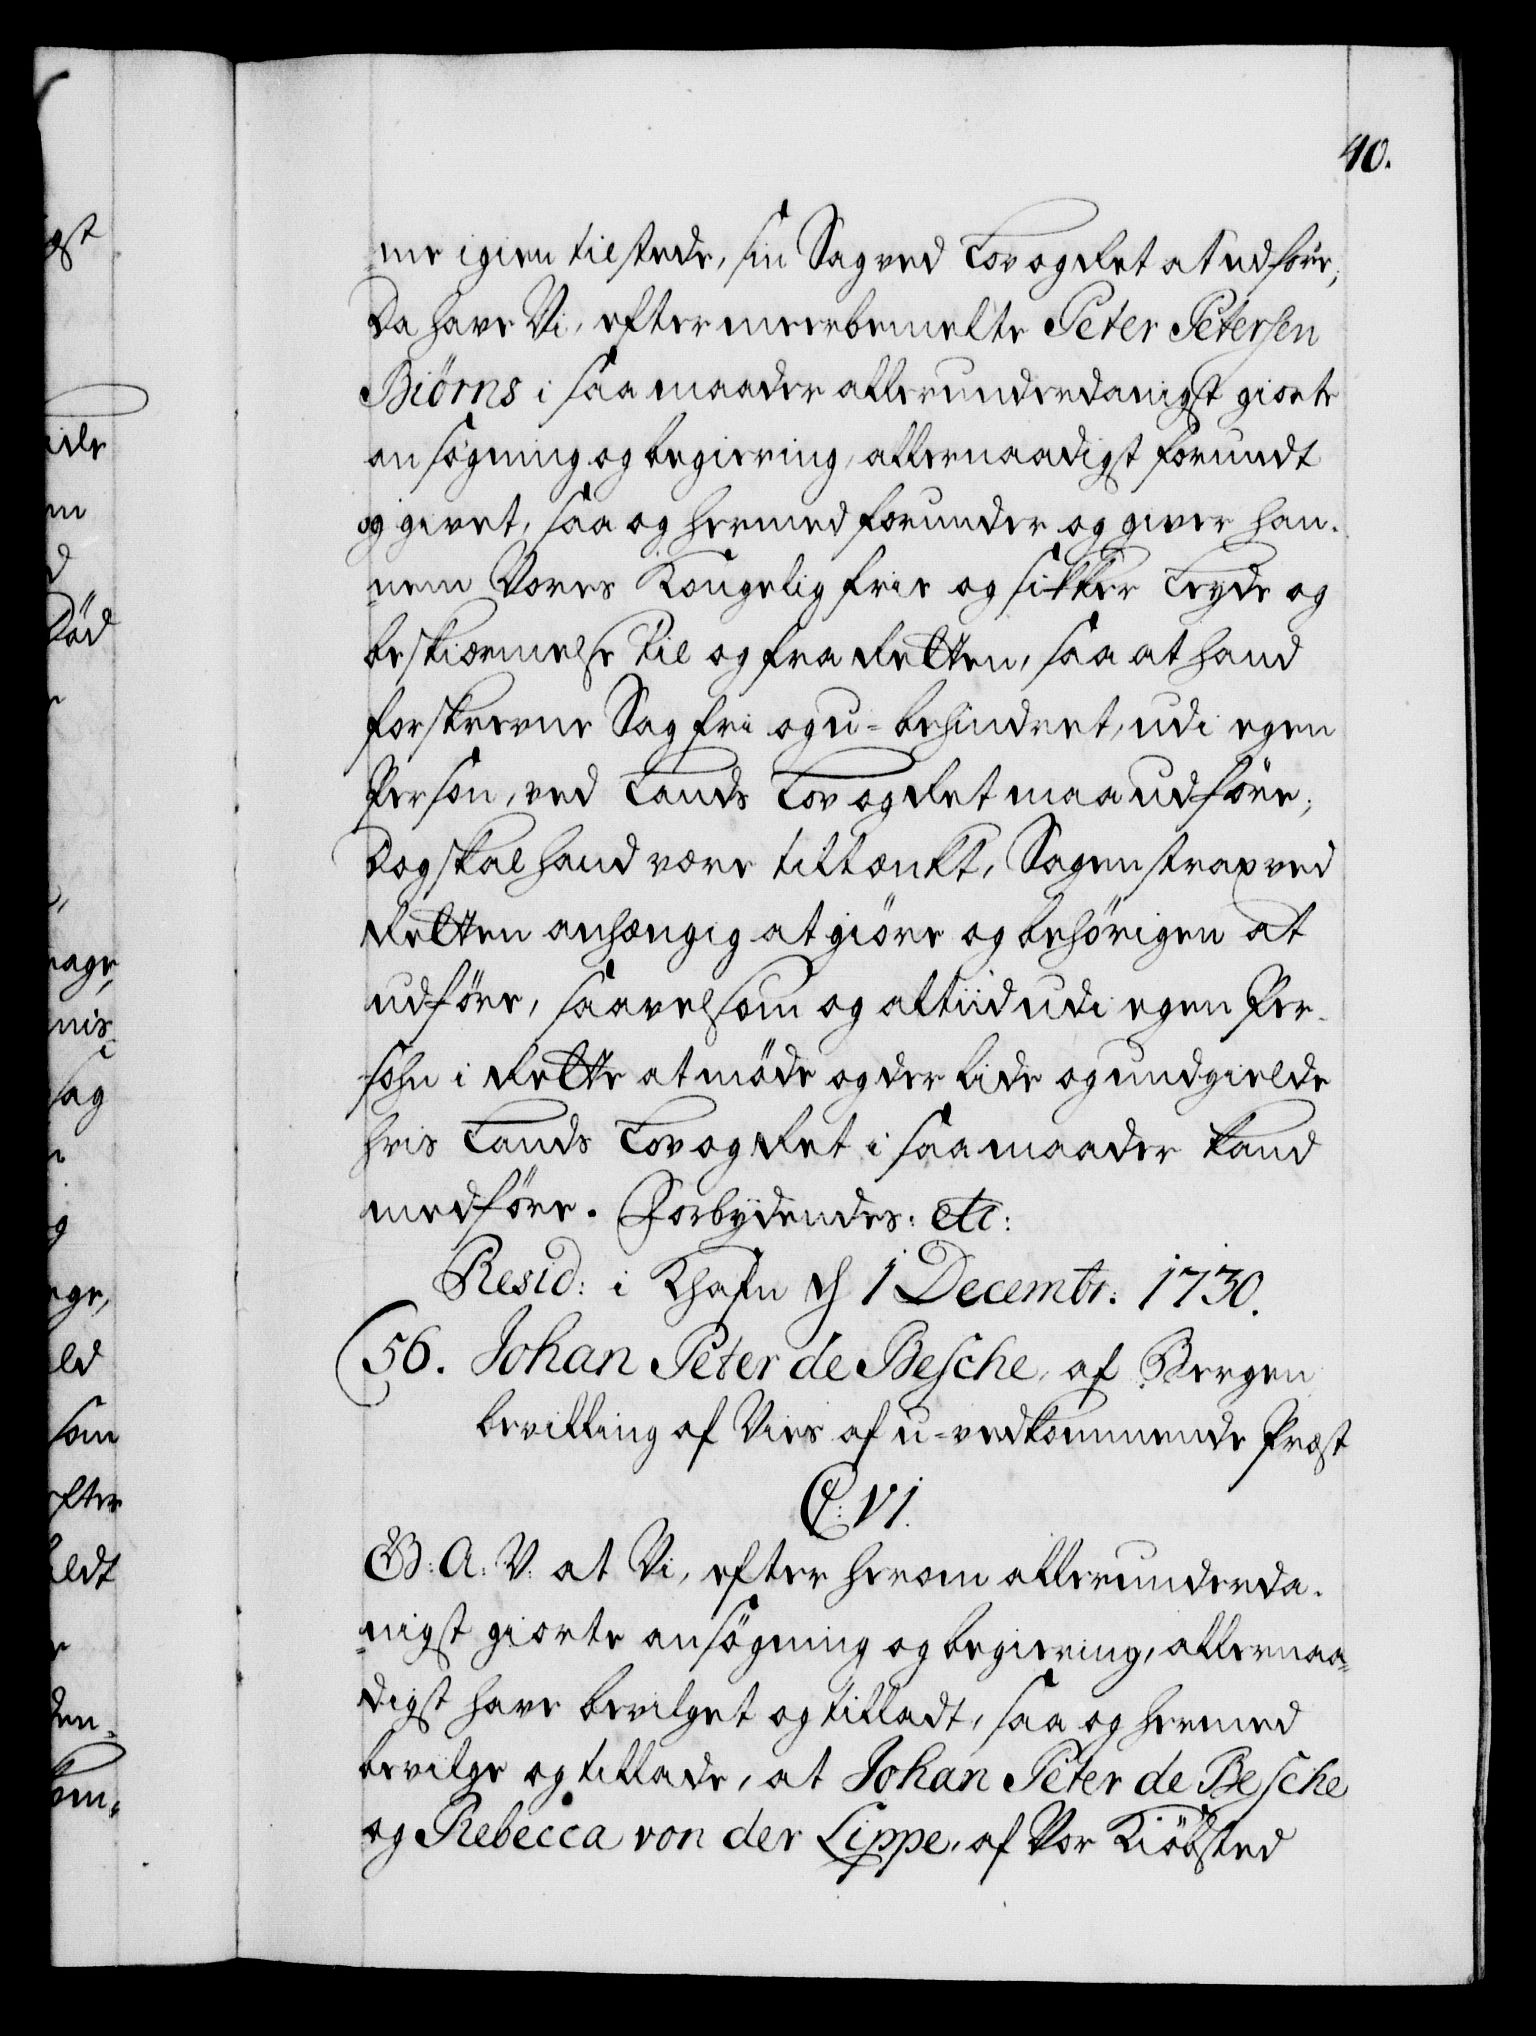 40.
me igien tilstede, sin Sag ved Lov og Ret at udföre;
Da have Vi, efter meerbemelte Peter Petersen
Biörns i saa maader allerunderdanigst giorte
ansögning og begiering, allernaadigst forundt
og givet, saa og hermed forunder og giver han-
nem Vores Kongelig frie og sikker Leyde og
beskiærmelse til og fra Retten, saa at hand
forskrevne Sag fri og u-behindret, udi egen
Person, ved Lands Lov og Ret maa udföre;
Dog skal hand være tiltænkt, Sagen strax ved
Retten anhængig at giöre og behörigen at
udföre, saavelsom og altiid udi egen Per-
sohn i Rette at möde og der lide og undgielde
hvis Lands Lov og Ret i saa maader kand
medföre. Forbydendes: etc:
Resid: i Khafn d 1 Decembr: 1730.
56. Johan Peter de Besche, af Bergen
bevilling af Vies af u-vedkommende Præst
C: VI.
G: A: V: at Vi, efter herom allerunderda-
nigst giorte ansögning og begiering, allernaa-
digst have bevilget og tilladt, saa og hermed
bevilge og tillade, at Johan Peter de Besche
og Rebecca von der Lippe, af Vor Kiöbsted
gst
iile
en
d
Död
r
rage,
nis
i
sag
g
ege,
eld
som
fter
eldt
r
den-
kom-